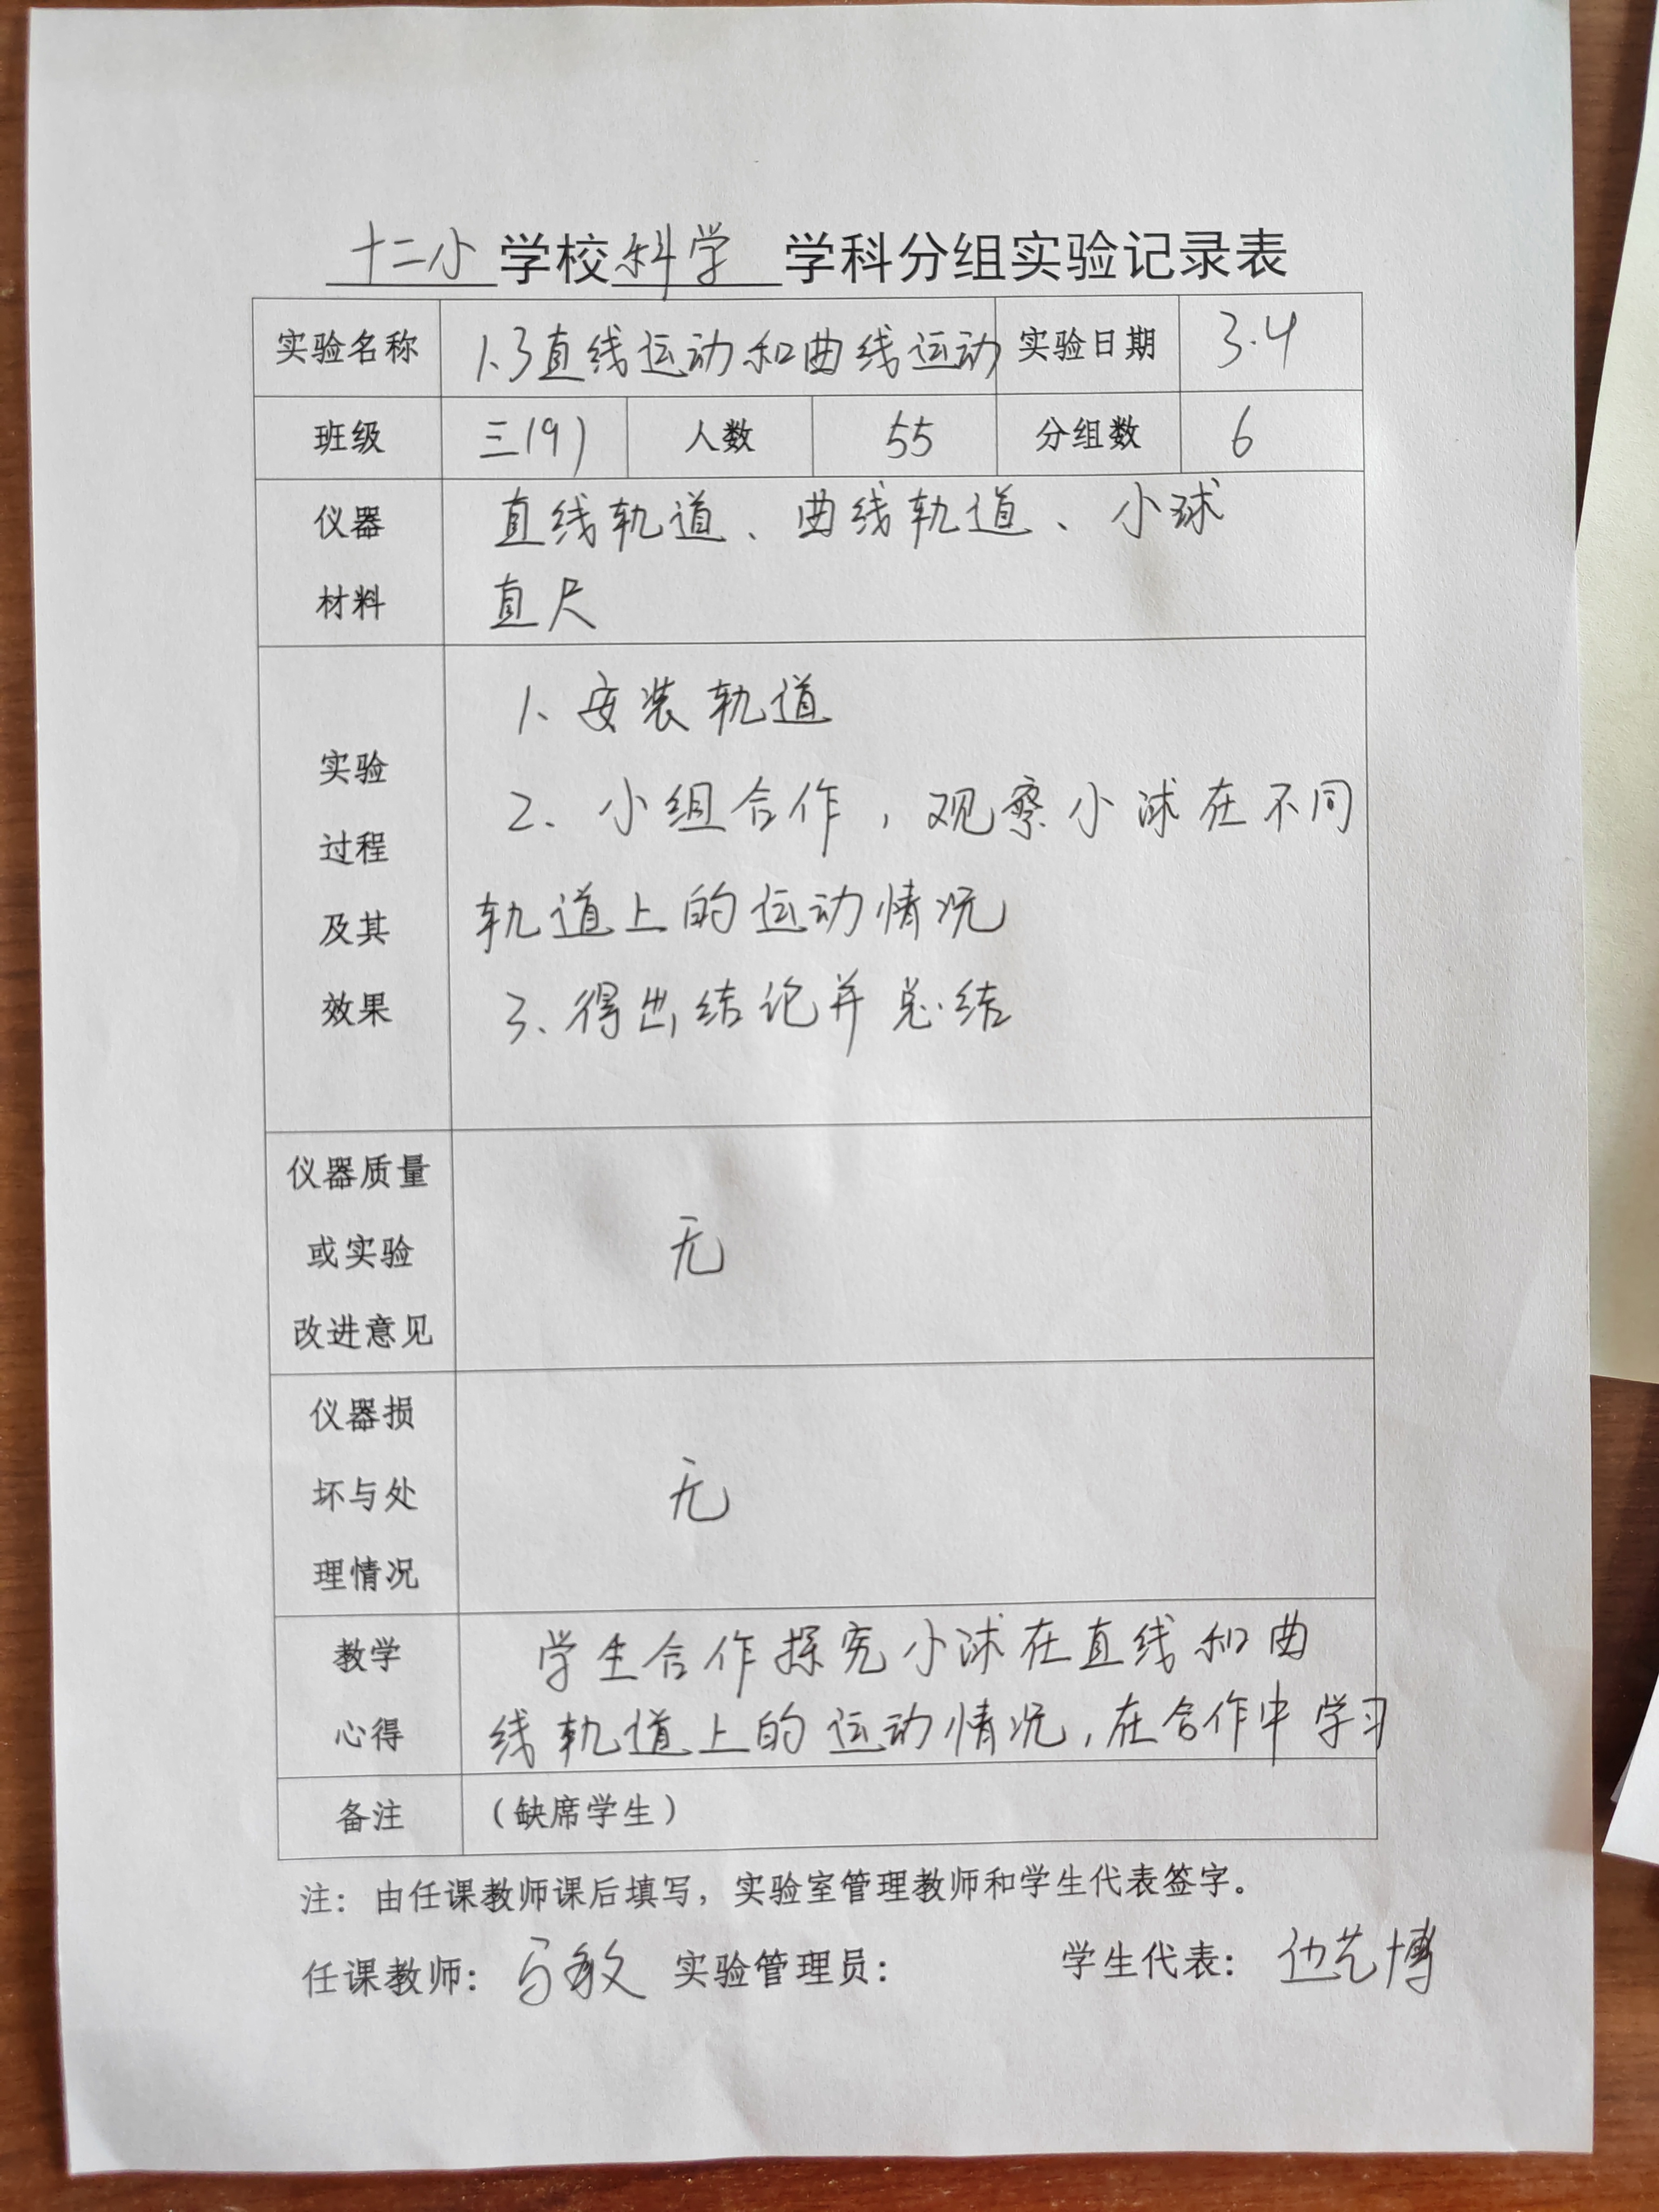 十二小 学校 科学 学科分组实验记录表
实验名称 1.3直线运动和曲线运动 实验日期 3.4
班级 三(9) 人数 55 分组数 6
仪器 直线轨道、曲线轨道、小球
材料 直尺
1、安装轨道
实验
2、小组合作，观察小球在不同
过程
轨道上的运动情况
及其
3、得出结论并总结
效果
仪器质量
或实验 无
改进意见
仪器损
坏与处 无
理情况
教学 学生合作探究小球在直线和曲
心得 线轨道上的运动情况，在合作中学习
备注 （缺席学生）
注：由任课教师课后填写，实验室管理教师和学生代表签字。
任课教师：马敏 实验管理员： 学生代表：边艺博